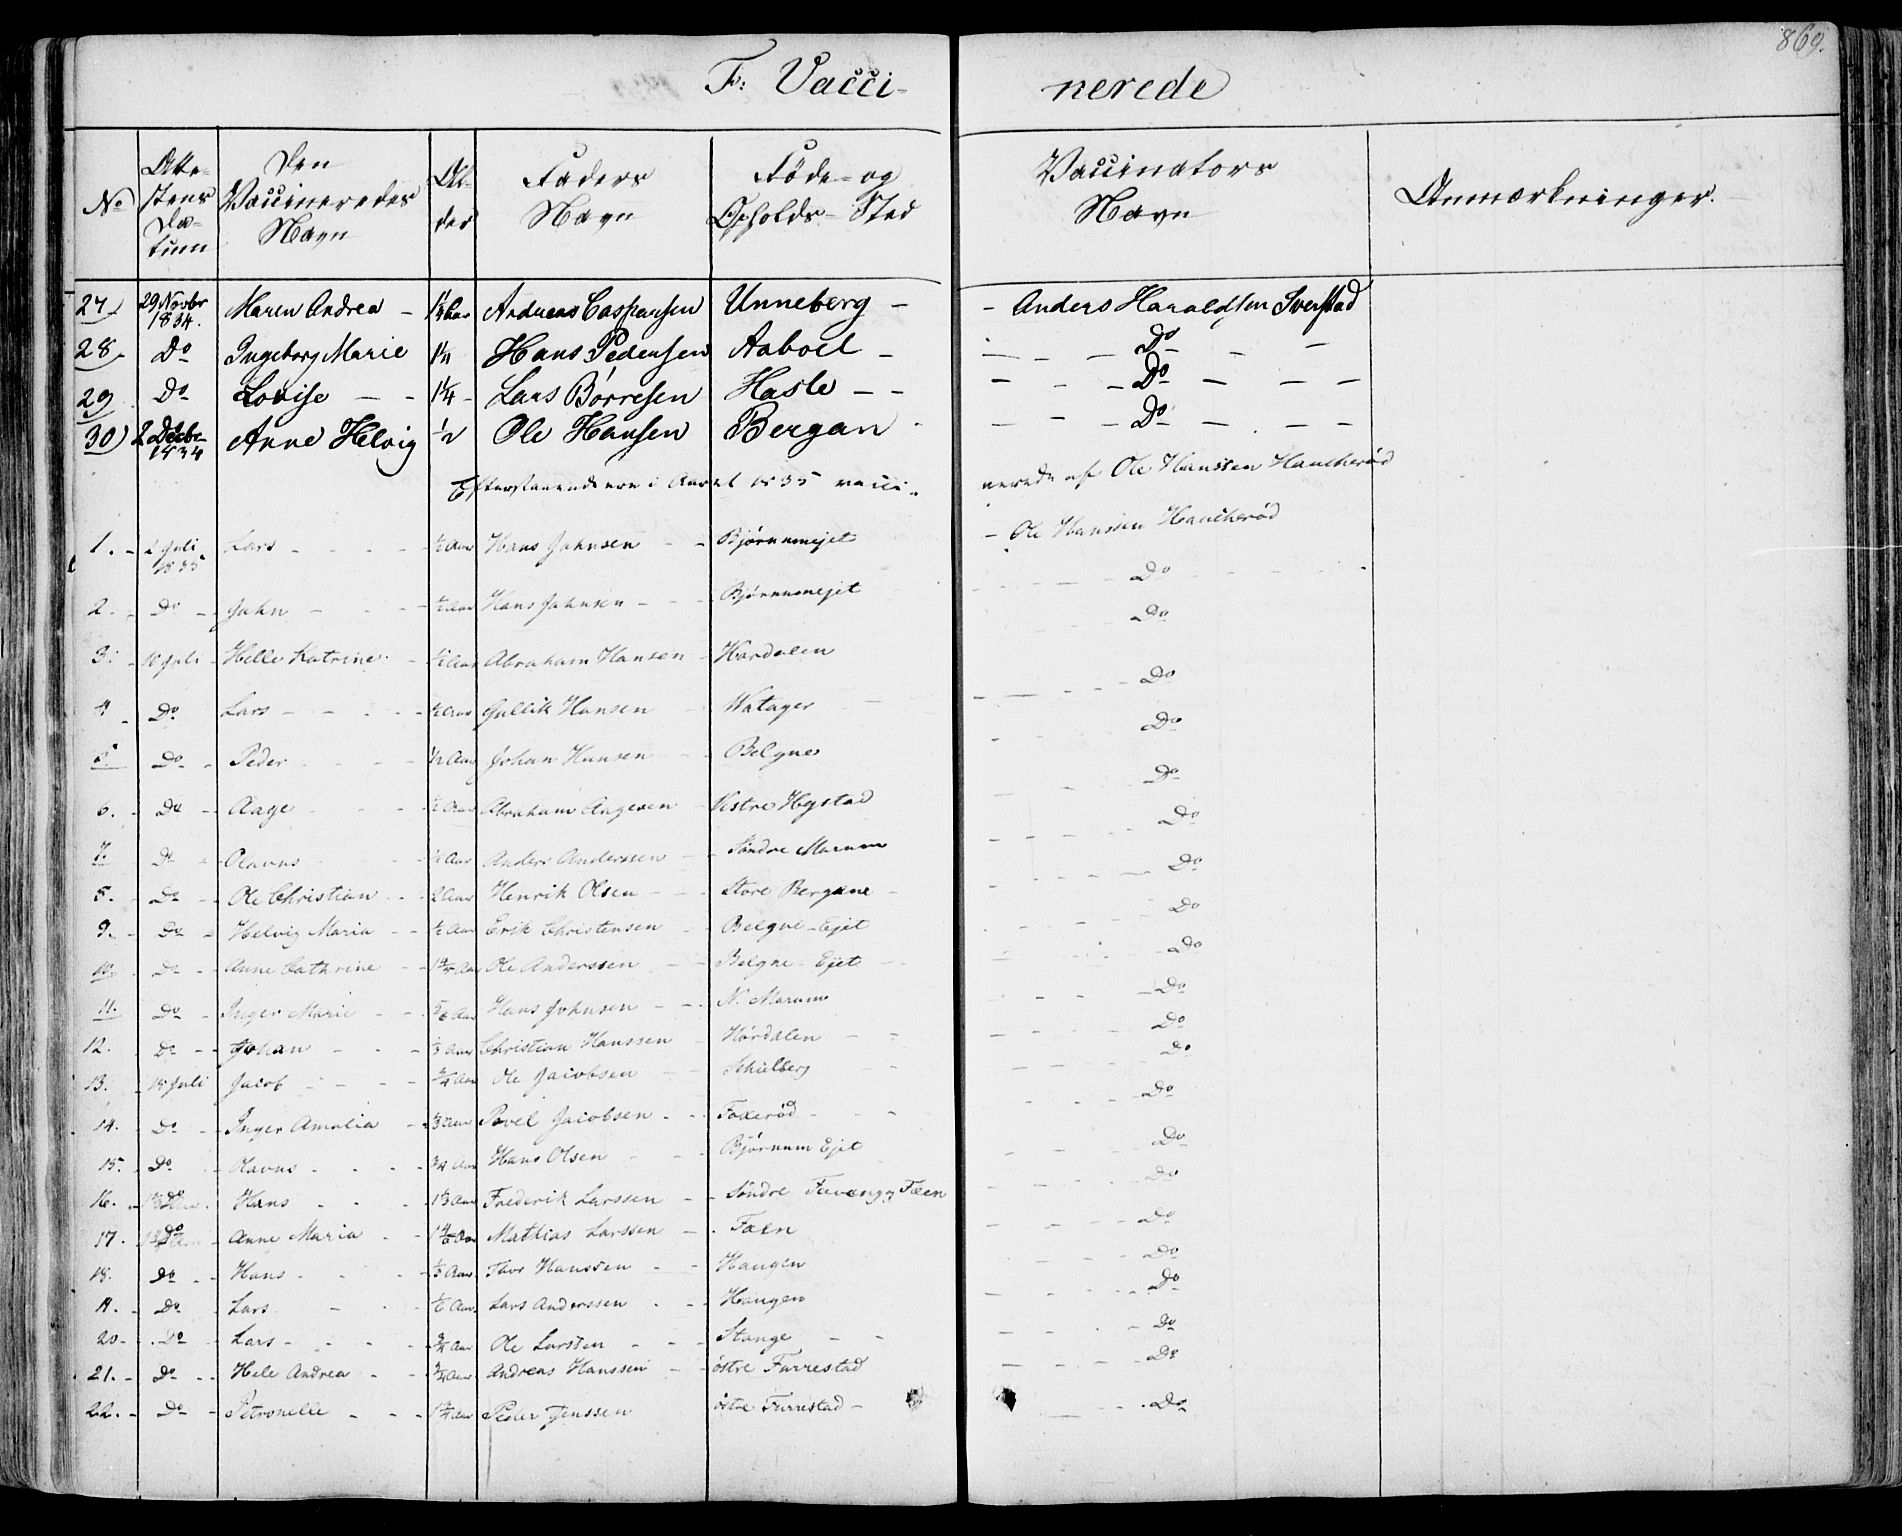 869.
F: Vacci- nerede
No | Atte-stens Da-tum | Den Vaccineredes Navn | Al-der | Faders Navn | Føde- og Opholds-Sted | Vaccinators Navn | Anmærkninger.
27. 29 Novbr 1834. Maren Andrea - 1 1/4 Aar Andreas Casspersen Unneberg - - Anders Haraldsen Sverstad
28. Do Ingeborg Marie Hans Pedersen Aaboel - Do
29. Do Lovise - - 1 1/4 - Lars Børresen Hasle - - Do
30) 2 Decbr 1834 Anne Helvig 1/2 Ole Hansen Bergan - Do
Efterstaaende ere i Aaret 1835 vacci- nerede af Ole Hanssen Haucherød
1. - 2 Juli 1835 Lars - 1/2 Aar Hans Jahnsen - - Bjørnumejet - Ole Hanssen Haucherød
2. - Do - Jahn - 1/2 Aar Hans Jahnsen - Bjørnumejet Do
3. - 10 Juli - Helle Katrine. - 1/2 Aar Abraham Hansen - Hørdalen Do
4 - Do Lars - 1/2 Aar Gullik Hansen Watager Do
5 Do - Peder 1/2 Aar Johan Hansen - Belgnes Do
6. - Do - Aage 1/2 Aar Abraham Aagesen Vestre Hystad Do
7. Do - Olavus 1/2 Aar Anders Anderssen - Søndre Marum Do
8. - Do - Ole Christian - 2 Aar Henrik Olsen - Store Bergane - Do
9. - Do - Helvig Maria - 1/2 Aar Erik Christensen - Belgne-Ejet Do
10. - Do - Anne Cathrine - Aar Ole Anderssen - Belgne-Ejet - Do
11. Do - Inger Marie - 5/6 Aar Hans Johnsen - N. Marum Do
12. - Do - Johan - 1/3 Aar Christian Hanssen - Hørdalen - Do
13. - 18 Juli Jacob - 3/4 Aar Ole Jacobsen Schielberg Do
14. - Do - Inger Amalia - Aar Povel Jacobsen - Foxerød - Do
15. - Do Olavus - 3/4 Aar Hans Olsen - Bjørnum Ejet Do
16. - Do Hans 1 1/3 Aar Frederik Larssen - Søndre Faen Do
17. - Do Anne Maria - Aar Mathias Larssen - Faen Do
18. Do - Hans - 1/3 Aar Thor Hanssen - Haugen Do
19. - Do - Lars - 1/6 Aar Lars Anderssen - Haugen Do
20 - Do Lars - 3/4 Aar Ole Larssen - Stange - Do
21. - Do - Hele Andrea - 3/4 Aar Andreas Hanssen - østre Furrestad Do
22. - Do - Petronelle - Aar Peder Jenssen østre Furrestad - Do